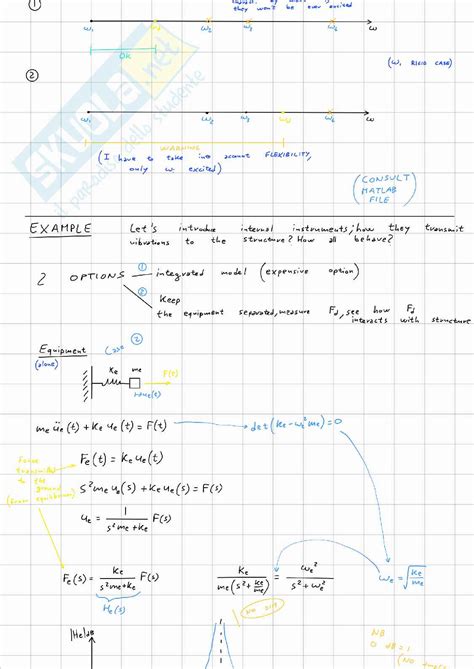 ①
they won't be ever excited
ω₁ ω₂ ω
Ok
(ω₁ RIGID CASE)
②
ω₁ ω₂ ω
WARNING
(I have to take into account FLEXIBILITY,
only ω₁ excited)
(CONSULT
MATLAB
FILE)
SKUOLA.net
il paradiso dello studente
EXAMPLE Let's introduce internal instruments; how they transmit
vibrations to the structure? How all behave?
2 OPTIONS ① integrated model (expensive option)
② Keep
the equipment separated, measure Fd, see how Fd
interacts with structure
Equipment Case ②
(alone)
Ke me F(t)
ue(t)
me üe(t) + Ke ue(t) = F(t) det(Ke - ωe² me) = 0
Force
transmitted
to the
ground
(from equilibrium)
Fe(t) = Ke ue(t)
s² me ue(s) + Ke ue(s) = F(s)
ue = 1 / (s² me + Ke) F(s)
Fe(s) = Ke / (s² me + Ke) F(s) Ke / (me (s² + Ke/me)) = ωe² / (s² + ωe²) ωe = √(Ke/me)
He(s)
|He|dB
NB
0 dB = 1